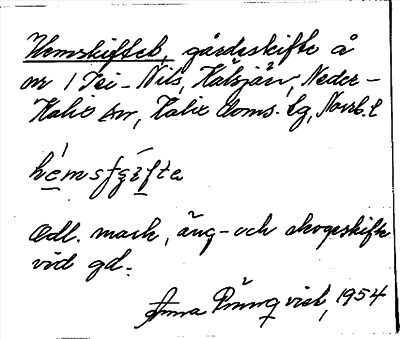 Hemskiftet, gårdsskifte å
nr 1 Jei-Nils, Hälsjärv, Neder-
Kalix sn, Kalix doms. tg, Norrb. l
hémsʃìfte
Odl. mark, äng- och skogsskifte
vid gd.
Anna 1954